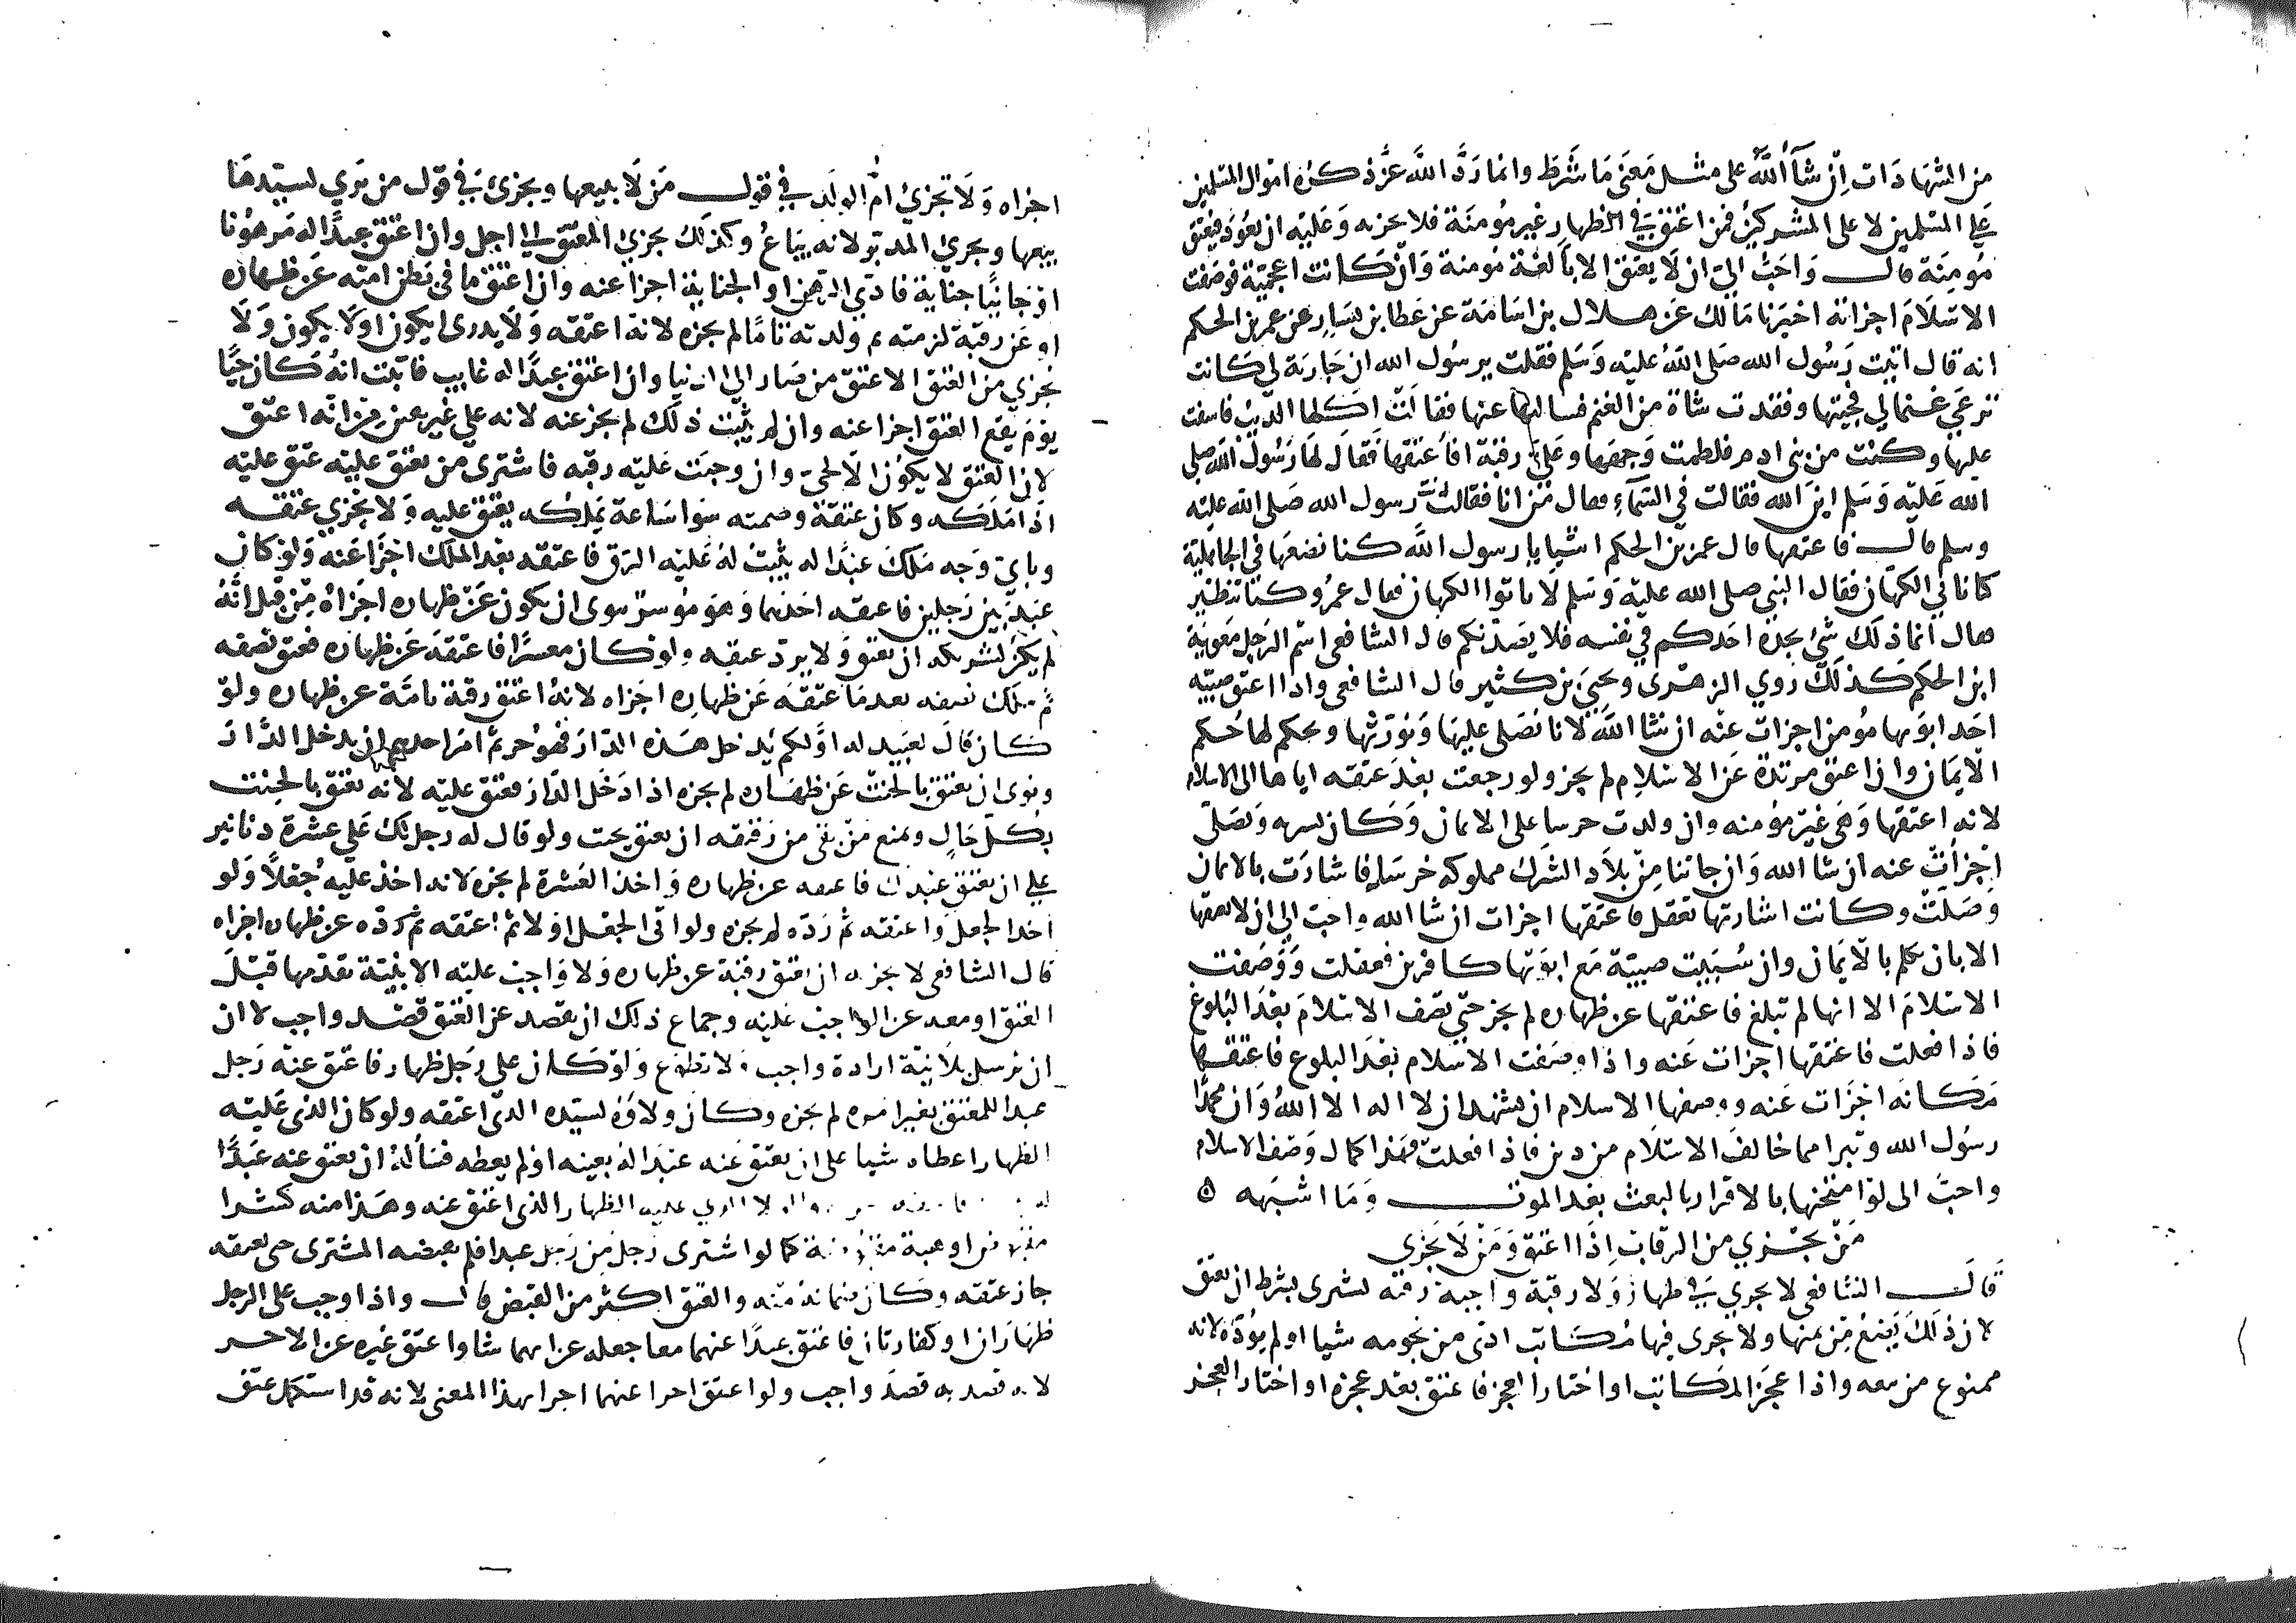 من الشهادات اِن شآ اللَّه على مثل مَعنَى مَا شَرط وانما رَدَّ اللَّه عزَّ ذكره اموال المسلمين
على المسلمين لا على المشركين فمن اعتق في الظهار غير مُومنَة فلا يجزه وَعَليه ان يعُود فيعتق
مُومنَة قال وَاحَبُّ اليّ ان لَا يعتق الا بالغة مُومنة وَان كانت اعجميّة فوصَفت
الاسْلامَ اجزاته اخبَرنا مَالك عَن هلال بن اسَامة عن عَطا بن يسَار عن عمر بن الحكم
انه قال اتيت رَسُول الله صَلى اللهُ عليه وَسَلم فقلت يرسُول الله ان جَارية لي كانت
ترعَي غنما لي فجيتها وفقدت شاة من الغنم فسالتها عنها فقالَت اكلها الديب فاسفت
عليها وكنت من بني ادم فلطمت وَجهها وعَليّ رقبة افاُعتقها فقال لهَا رَسُولُ الله صلى
الله عَليه وَسَلم اينَ الله فقالت في السَّمآءِ فقال مَن انا فقالت انت رسول الله صَلى الله عليه
وسلم قال فاعتقها قال عمر بن الحكم اشيا يا رسول اللَّه كنا نصْنعهَا في الجاهلية
كنا ناتي الكهان فقال النبي صلى الله عليه وَسَلم لا تاتوا الكهان فقال عمرُ وكنا نتطير
فقال انما ذلك شيُ يجده احَدكم في نفسه فلا يصدّنكم قال الشافعي اسْم الرَجل مَعوية
ابن الحكم كذلك رَوي الزهرى ويحيَى بن كثير قال الشافعى واذا اعتق صبيّه
احَد ابوَيها مُومن اجزات عنْه ان شا اللَّه لانا نصَلى عليهَا وَنورّثها ونحكم لها حُكم
الايمَان وان اعتق مرتدة عَن الاسْلام لم يجز ولو رجعت بعْدَ عتقه اياها الى الاسلام
لانه اعتقها وَهى غيْر مُومنه وان ولدت خرسا على الايمان وَكان تشير به وَتصَلّى
اجْزاتْ عنه ان شا الله وَان جاتنا مِن بلاَد الشرك مملوكة خرسَا فاشارَت بالايمان
وَصَلّت وكانت اشارتها تعقل فاعتقها اجزات ان شا الله واحبّ الي ان لا يعتقها
الا بان تكلم بالايمَان وان سُبَيت صبيّة مَع ابوَيها كافرين فعقلت وَوَصَفت
الاسْلامَ الا انها لم تبلغ فاعتقها عن ظهاره لم يجز حتى تصف الاسْلامَ بعْد البُلوغ
فاذا فعلت فاعتقها اجزات عَنه واذا وصَفت الاسْلام بعدَ البلوغ فاعتقها
مَكانهَ اجْزَات عَنه ووصفها الاسلام ان تشهد ان لا اله الا اللهُ وَان محمدًا
رسُول الله وتبرا مما خالفَ الاسْلَام من دين فاذا فعلت فهَذا كمال وَصف الاسلام
واحبّ الى لوْ امتحنها بالاقرار بالبعث بعْد الموت وَمَا اشبَهه ۵
مَن يجْزي من الرقاب اِذَا اعتق وَمَن لَا يجْزي
قَالَ الشافعى لا يجزي في ظهار وَلا رقبة واجبة رقبه تشترى بشرط ان يعتق
لان ذلكَ يَضعُ مِن ثمنها ولا يجزى فيها مُكاتب ادى من نجومه شيا اولم يؤدّه لانه
ممنوع من بيعه واذا عجَزَ المكاتب او اختار العجز فاعتق بعْد عجزه او اختار العجز
اجزاه وَلَا تجزيُ امّ الولَد في قول مَن لَا يبيعها ويجزئ في قوْل من يرَي لسيّدهَا
بيعها ويجزئُ المدبّر لانه يبَاعُ وكذلك يجزئ المعتق الى اجل وان اعتق عبدًا له مَرهُونا
اوْ جَانيًا جناية فادّي الرّهن او الجناية اجزا عنه وان اعتق ما في بَطن امَته عَن ظهاره
او عَن رقبة لزمته ثم ولدته تامًا لم يجزه لانه اعتقه وَلَا يدرى ايكون او لَا يكون وَلَا
يجزي من العتق الا عتق من صَار الى الدنيا وان اعتق عبدًا له غايب فاثبت انهُ كان حيًّا
يوْمَ يقع العتق اجزا عنه وان لم يثبت ذلكَ لم يجز عنه لانه علي غير يقين من انّه اعتق
لان العتق لا يكوُن الَا لحيّ وان وجبَت عَليه رقبه فاشترى من يعتق عليه عَتق عليه
اذا مَلَكه وكان عتقهُ وصمته سَوا سَاعة يمَلكه يعتق عليه وَلا يجْزي عتقه
وباي وَجه مَلَكَ عبْدًا له يثبتُ لهُ عَليه الرَق فاعتقه بعْد الملك اجْزَا عَنه وَلوْ كان
عَبد بَين رَجلين فاعتقه احَدهما وَهوَ مُوسرٌ سوى ان يكون عَن ظهاره اجَزاهُ مِن قبل انَّهُ
لم يكن لشريكه ان يعتق وَلا يردّ عتقه ولوْ كان معسرًا فاعتقهُ عَن ظهاره فعتق نصْفه
ثم ملك نصفه بعدمَا عتقهَ عَن ظهاره اجَزاه لانهُ اعتق رقبة تامّة عن ظهاره ولوْ
كان قالَ لعَبيد له اوَّلكم يَدخل هَذه الدّارَ فهوُ حر ثم امَرَ احدهم ان يدخل الدَّارَ
ونوى ان يعتق بالحنثْ عَن ظهَاره لم يجزه اذا دَخلَ الدّارَ فعتق عليْه لانه يعتق بالحِنْث
بكلّ حَالٍ ومنع مَن بقى من رَقيقه ان يعتق بحنث ولو قال له رجل لك عَلي عشرة دنانير
علي ان تعْتق عبدك فاعتقه عن ظهاره وَاخذ العشرة لم يجزه لانه اخذ عليه جُعْلاً وَلو
اخذ الجعل وَاعتقه ثم رَدّه لم يجزه ولو ابى الجعْل اوّلا ثم اعتقه ثم ردّه عن ظهاره اجزاه
قال الشافعى لا يجزيه ان يعتق رقبة عن ظهاره وَلا وَاجبْ عليْه الا بنيّة تقدّمها قبْلَ
العتق او معه عن الواجبْ عَليه وجماع ذلك ان يقصد عن العتق قصْد واجب لا ان
ان يرسل بلَا نيّة ارادة واجب ولا تطوّع وَلوْ كان على رَجل ظهار فاعتق عنْه رَجل
عبدا للمعتق بغير امره لم يجزه وكان ولاؤه لسيّده الذّى اعتقه ولو كان الذى عَليه
الظهار اعطاه شيا على ان يعتق عَنه عَبْدًا لهُ بعينه اوْ لم يعطه فسَأله ان يعتق عنه عَبدًا
الظهار الذى اعتق عنه وهَذا منه كشرا
او هبة كما لو اشترى رَجل مِن رَجل عبدا فلم يقبضه المشترى حتى يعتقه
جاز عتقه وكان ضمانه منه والعتق اكثر من القبض قال واذا وجب على الرجل
ظهَارَان او كفارتان فاعتق عبدًا عنهما معا جعله عن ايهما شا واعتق غيره عن الاخر
لانه قصد به قصدَ واجب ولو اعتق اخرا عنهما اجزا بهذا المعنى لانه قد استكمل عتق